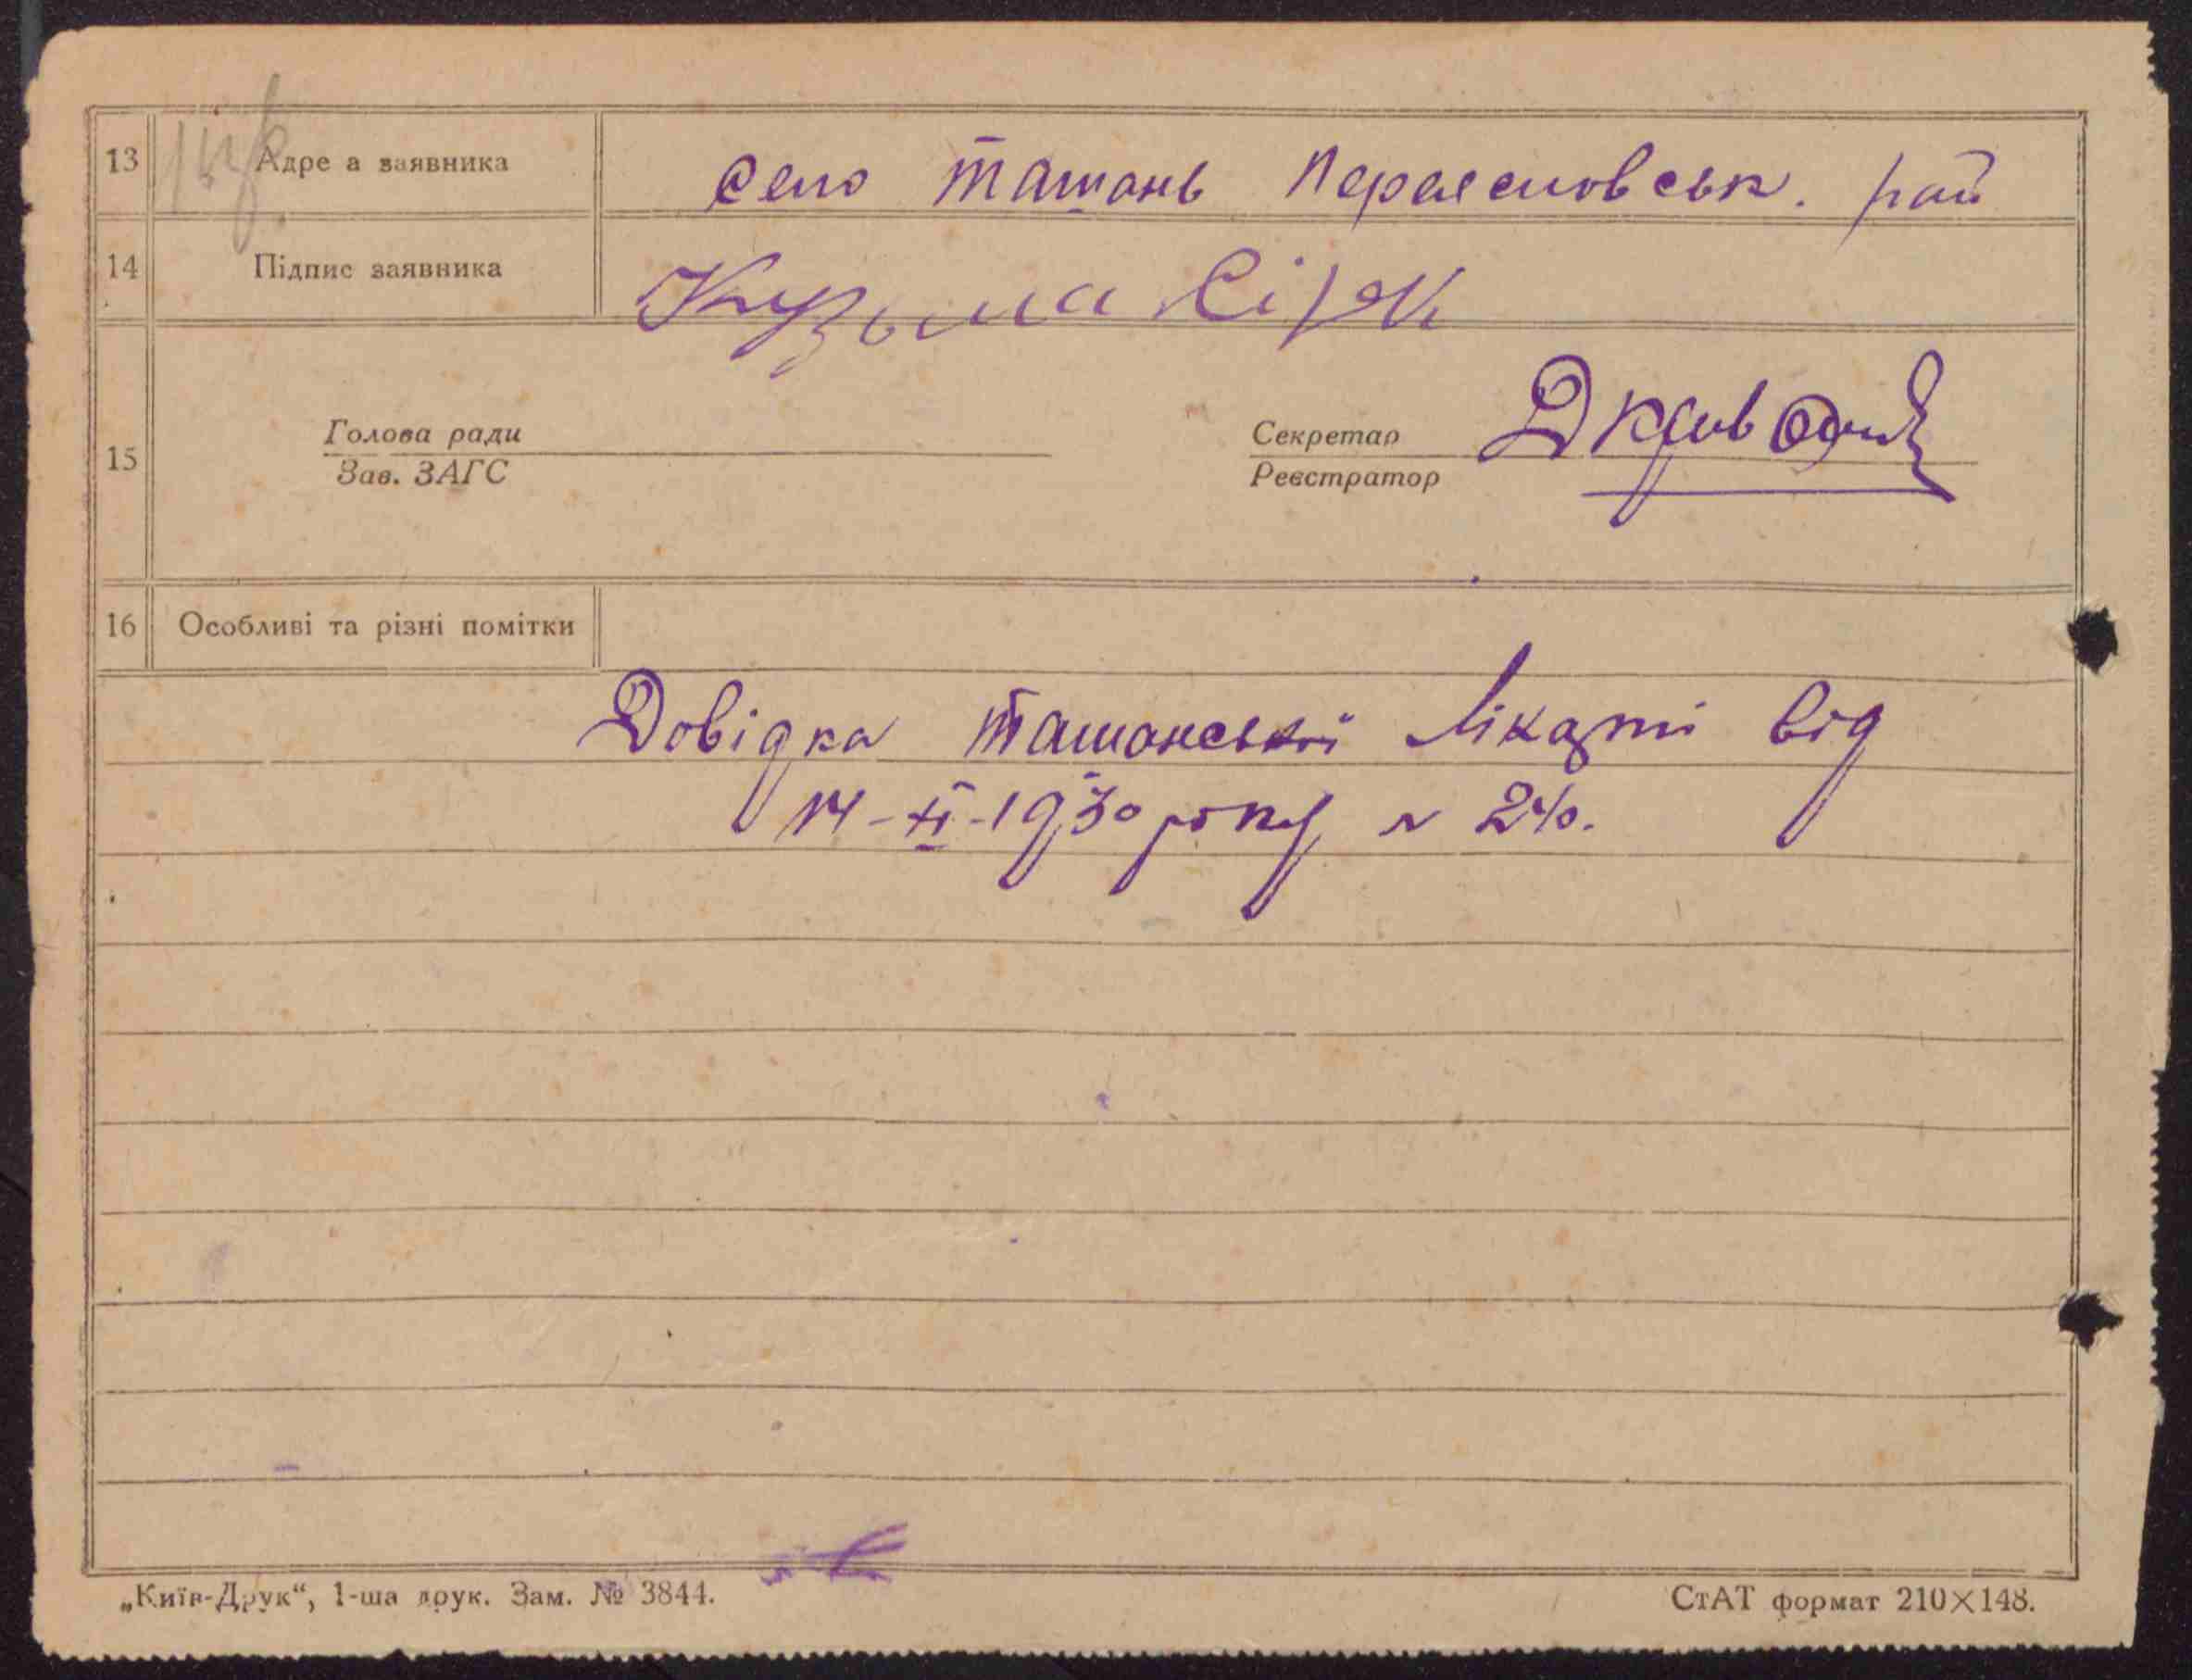 13 Адре а заявника село Ташань Переяславськ. рай
14 Підпис заявника Кузьма
15 Голова ради
Зав. ЗАГС
Секретар
Реєстратор
16 Особливі та різні помітки
Довідка Ташанської лікарні від
14-XI-1930 року № 240.
„Київ-Друк“, 1-ша друк. Зам. № 3844.
СтАТ формат 210×148.